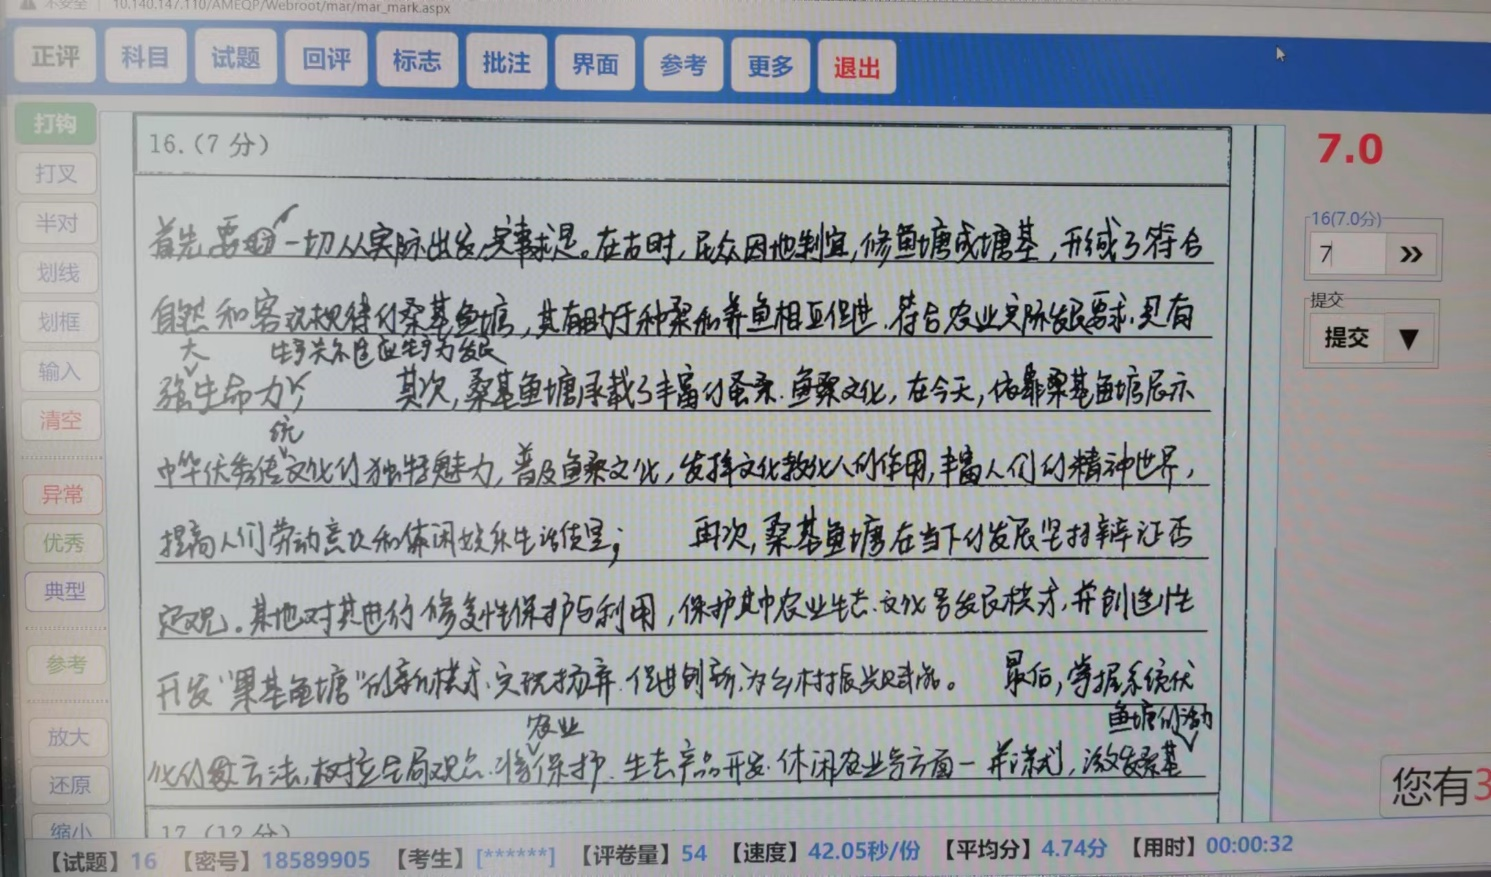 不安全 10.140.147.110/AMEQP/Webroot/mar/mar_mark.aspx
正评 科目 试题 回评 标志 批注 界面 参考 更多 退出
打钩
打叉
半对
划线
划框
输入
清空
异常
优秀
典型
参考
放大
还原
缩小
16.(7 分)
首先要 一切从实际出发,实事求是。在古时,民众因地制宜,修鱼塘成塘基,形成了符合
自然和客观规律的桑基鱼塘,其有助于种桑和养鱼相互促进,符合农业实际发展要求,具有
大 生产关系适应生产力发展
强生命力; 其次,桑基鱼塘承载了丰富的蚕桑、鱼桑文化,在今天,依靠桑基鱼塘展示
统
中华优秀传文化的独特魅力,普及鱼桑文化,发挥文化教化人的作用,丰富人们的精神世界,
提高人们劳动意识和休闲娱乐生活质量; 再次,桑基鱼塘在当下的发展坚持辩证否
定观。基地对其进行修复性保护与利用,保护其中农业生态、文化等发展模式,并创造性
开发“桑基鱼塘”的新模式,实现扬弃,促进创新,为乡村振兴赋能。 最后,掌握系统优
农业 鱼塘的活力
化的方法,树立全局观念,将保护、生态产品开发、休闲农业等方面一并谋划,激发桑基
17.(12分)
7.0
16(7.0分)
7 »
提交
提交 ▼
您有3
【试题】16 【密号】18589905 【考生】[******] 【评卷量】54 【速度】42.05秒/份 【平均分】4.74分 【用时】00:00:32